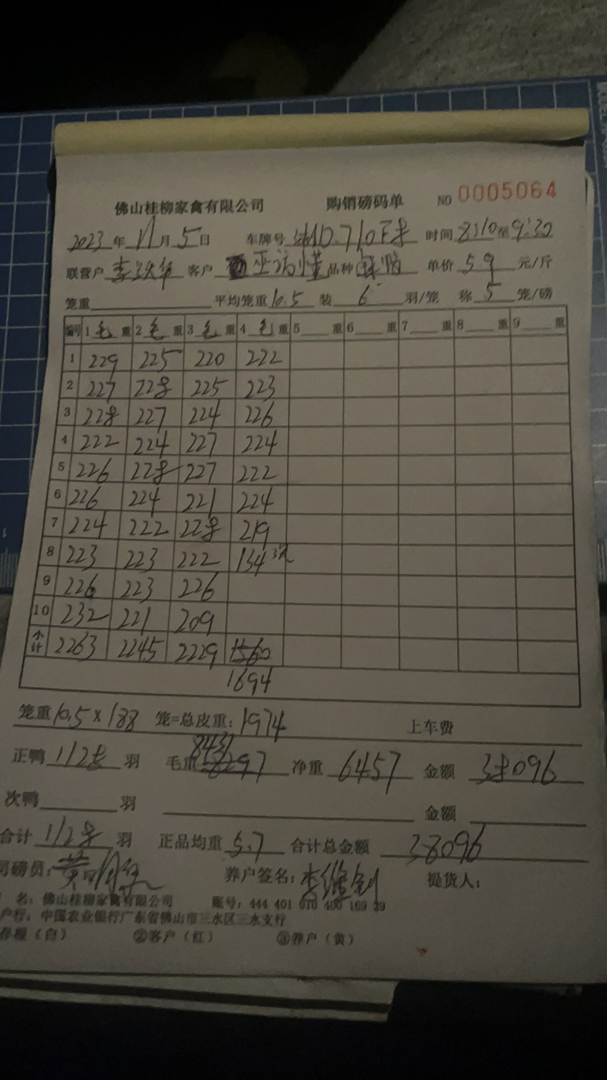 佛山桂柳家禽有限公司 购销磅码单 NO 0005064
2023年11月5日 车牌号 710 时间8:10至9:30
联营户 李 客户 品种 单价 5.9 元/斤
笼重 平均笼重10.5 装 6 羽/笼 称 5 笼/磅
编号 1毛重 2毛重 3毛重 4毛重 5 重 6 重 7 重 8 重 9 重
1 229 225 220 222
2 227 228 225 223
3 228 227 224 226
4 222 224 227 224
5 226 228 227 222
6 226 224 221 224
7 224 222 228 219
8 223 223 222 134
9 226 223 226
10 232 221 209
小计 2263 2245 2229 1560
1694
笼重10.5×188 笼=总皮重:1974 上车费
8431
正鸭 1128 羽 毛重 8297 净重 6457 金额 38096
次鸭 羽 金额
合计 1128 羽 正品均重 5.7 合计总金额 38096
司磅员: 黄 养户签名: 李 提货人:
名:佛山桂柳家禽有限公司 账号:444 401 010 400 169 39
户行:中国农业银行广东省佛山市三水区三水支行
存根(白) ②客户(红) ③养户(黄)